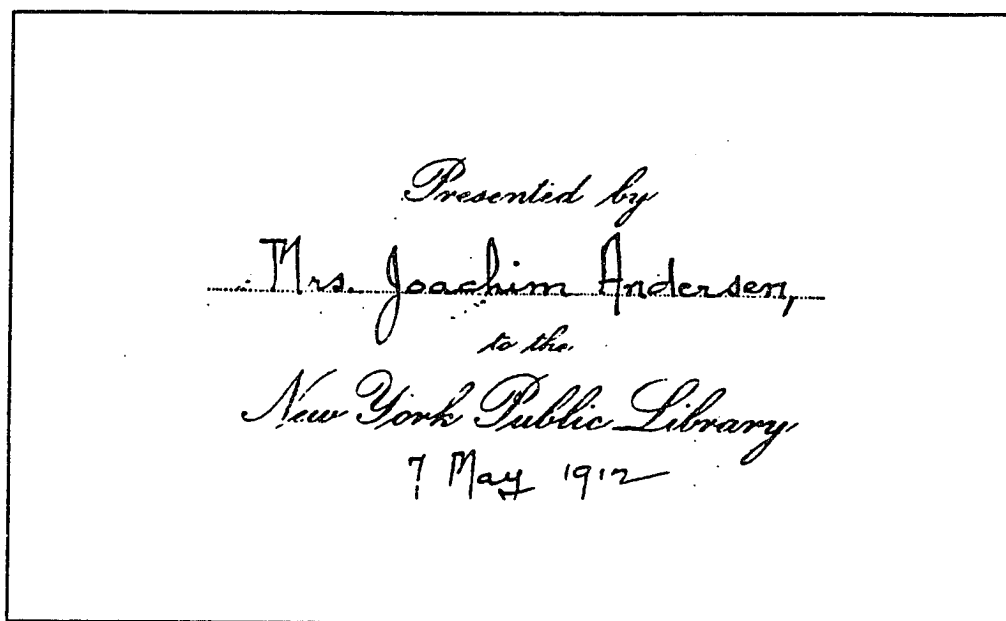 Presented by
Mrs. Joachim Andersen,
to the
New York Public Library
7 May 1912